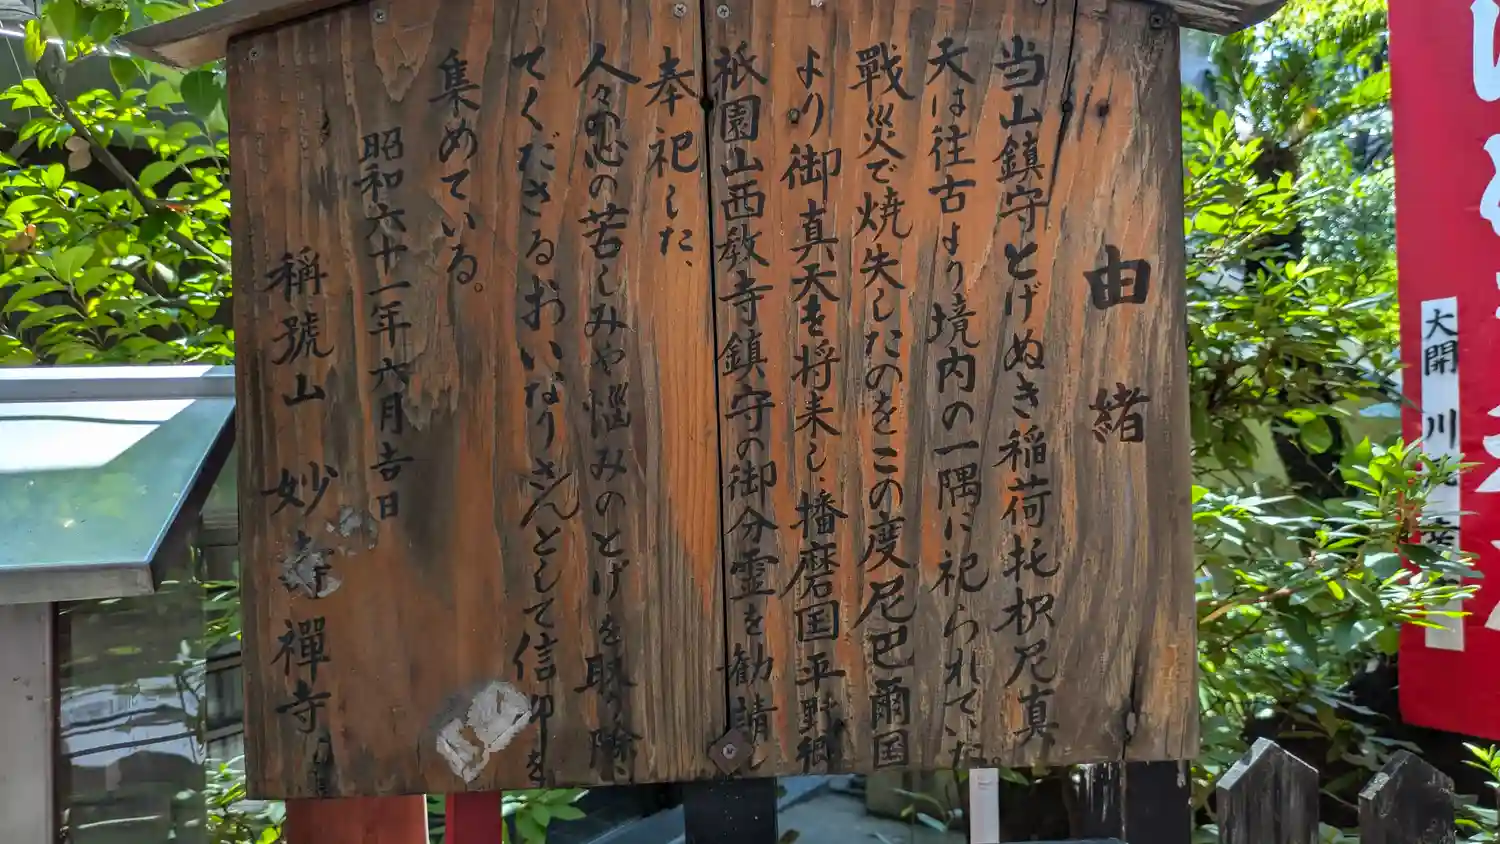 由緒
当山鎮守とげぬき稲荷托枳尼真
天は往古より境内の一隅に祀られていた。
戰災で焼失したのをこの度尼巴爾国
より御真天を将来し、播磨国平野郷
祇園山西教寺鎮守の御分霊を勧請し
奉祀した、
人々の心の苦しみや悩みのとげを取り除い
てくださるおいなりさんとして信仰を
集めている。
昭和六十一年六月吉日
稱號山妙寺禪寺
大開
川